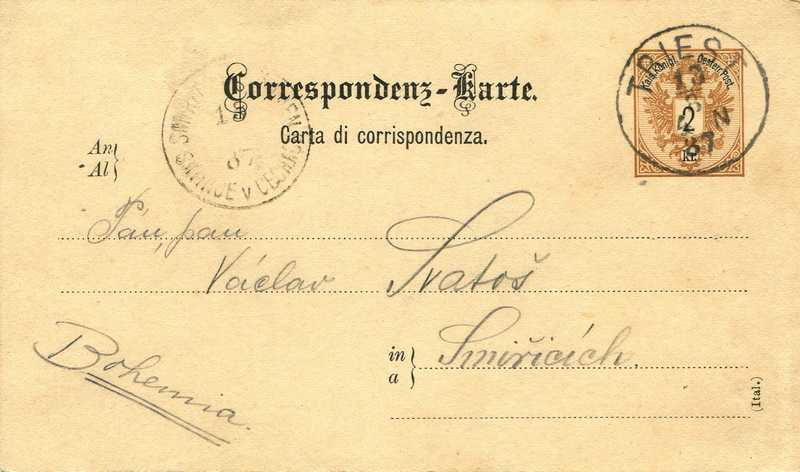 Correspondenz-Karte.
Carta di corrispondenza.
TRIEST
13
87
N
Kais. Königl. Oesterr. Post.
2
Kr.
13
87
SMIŘICE v ČECHÁCH
An
Al
Pán, pan
Václav Svatoš
in
a
Smiřicích.
Bohemia.
(Ital.)